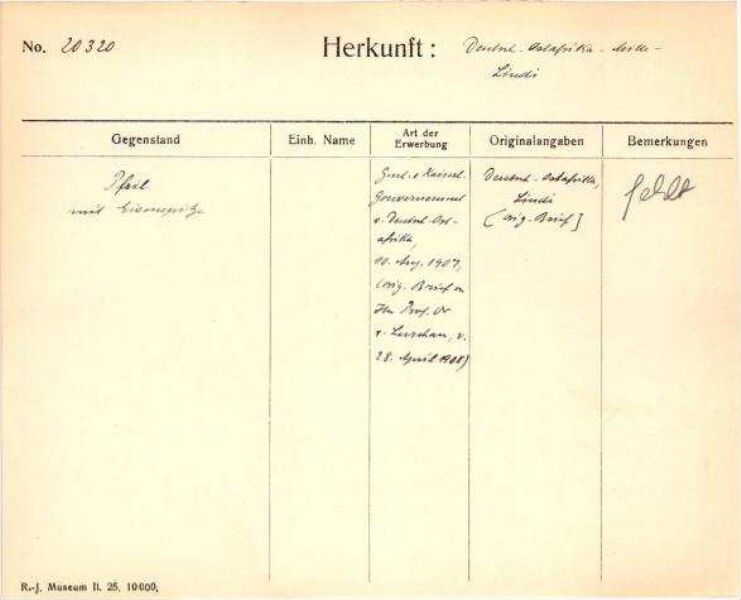 No. 20320
Herkunft: Deutsch-Ostafrika -
Lindi
Gegenstand
Einh. Name
Art der Erwerbung
Originalangaben
Bemerkungen
Pfeil
mit Eisenspitze
v. Kaiserl.
Gouvernement
v. Deutsch-Ost-
afrika,
10. Aug. 1907,
(orig. Brief an
Hn Prof. Dr
v. Luschan, v.
28. April 1908)
Deutsch-Ostafrika,
Lindi
[orig. Brief]
fehlt
R.-J. Museum II. 25. 10000.